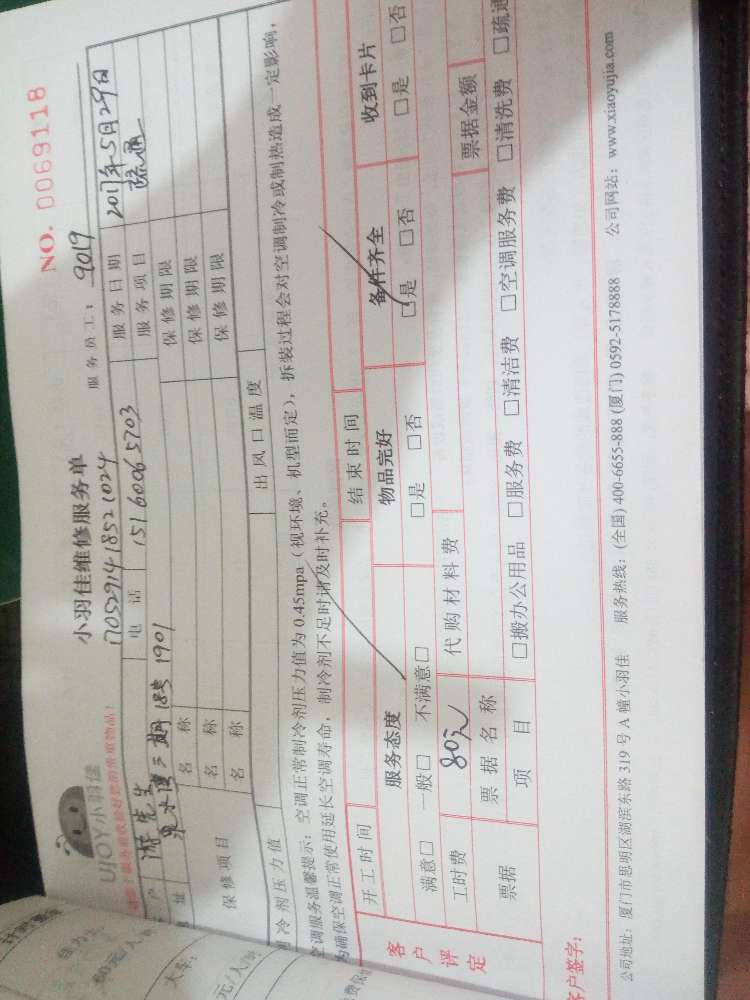 NO. 0069118
小羽佳维修服务单
UJOY小羽佳
服务员工: 9019
17052914185 21024
户 游先生 电话 15160065703 服务日期 2017年5月29日
址 泉水湾二期18号1901 服务项目 疏通
保修项目
名称 保修期限
名称 保修期限
名称 保修期限
冷剂压力值 出风口温度
空调服务温馨提示:空调正常制冷剂压力值为0.45mpa(视环境、机型而定),拆装过程会对空调制冷或制热造成一定影响,
为确保空调正常使用延长空调寿命,制冷剂不足时请及时补充。
开工时间 结束时间
客户评定
服务态度 物品完好 备件齐全 收到卡片
满意□ 一般□ 不满意□ □是 □否 □是 □否 □是 □否
工时费 80元 代购材料费
票据 票据名称 票据金额
项目 □搬办公用品 □服务费 □清洁费 □空调服务费 □清洗费 □疏通
客户签字:
公司地址:厦门市思明区湖滨东路319号A幢小羽佳 服务热线:(全国)400-6655-888 (厦门)0592-5178888 公司网站:www.xiaoyujia.com
计时搬屋
60元/人
大车:
元/人